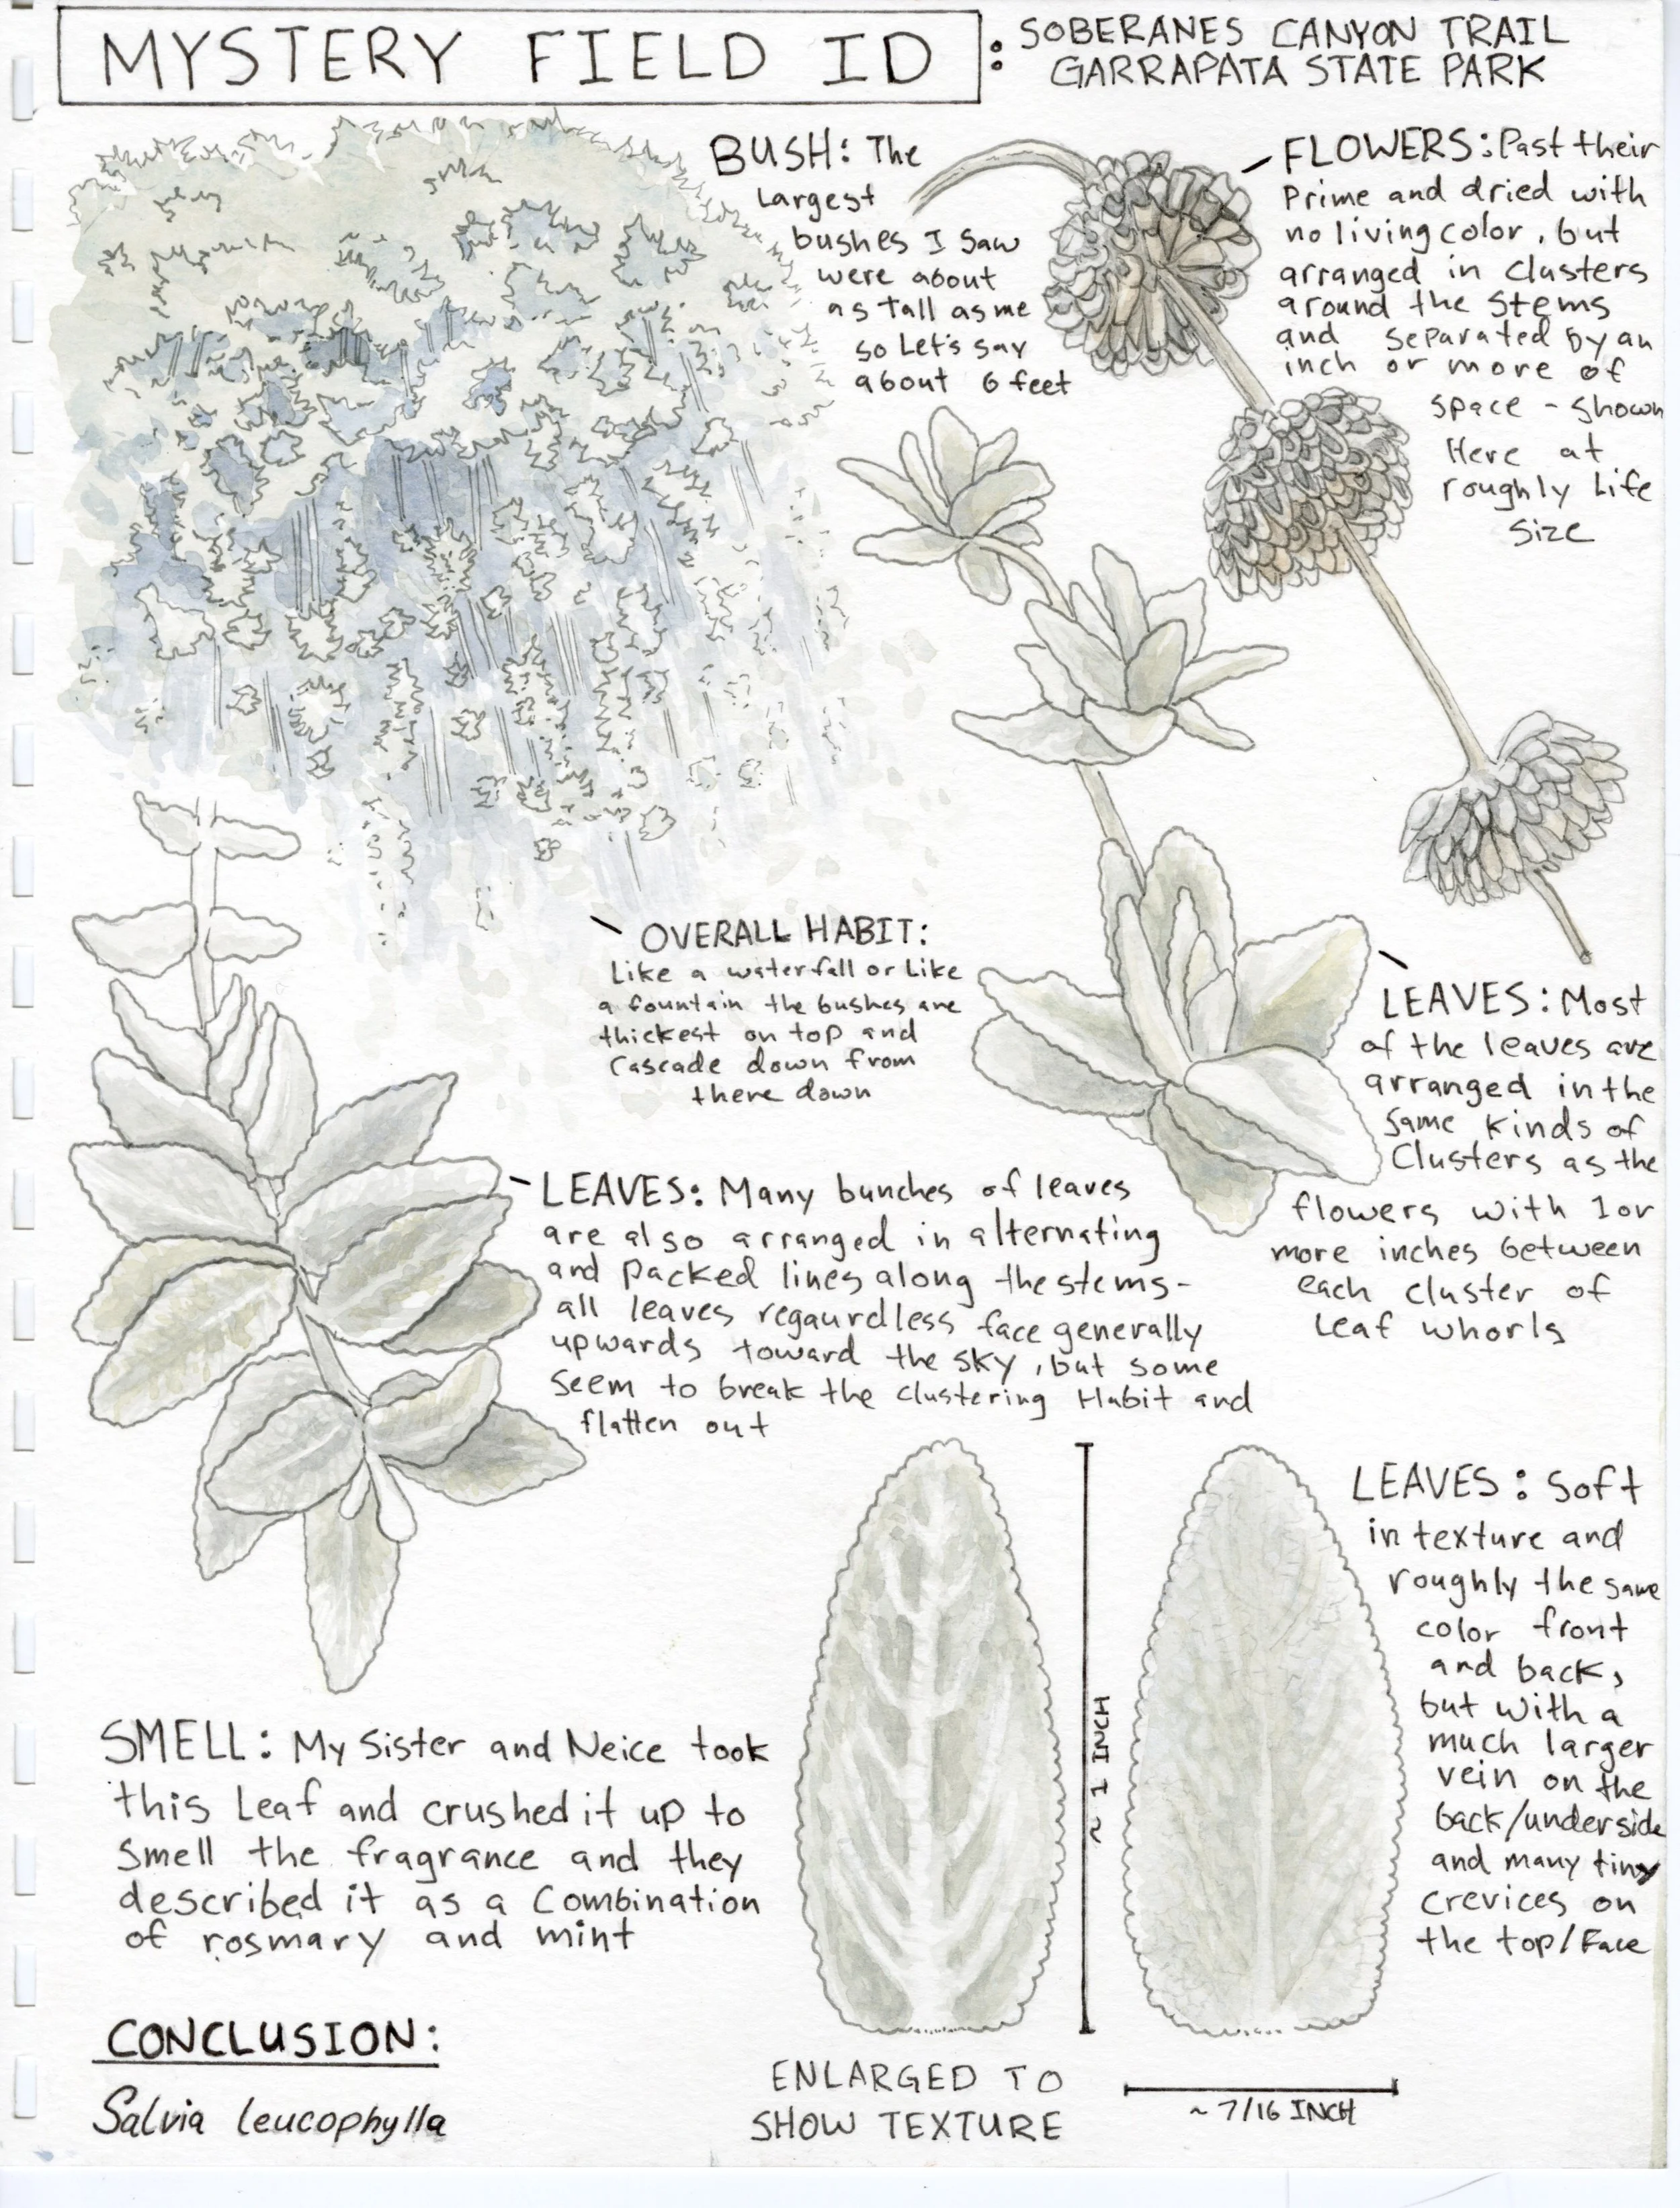 MYSTERY FIELD ID : SOBERANES CANYON TRAIL
GARRAPATA STATE PARK
BUSH: The
largest
bushes I saw
were about
as tall as me
so Let's say
about 6 feet
FLOWERS: Past their
Prime and dried with
no living color, but
arranged in clusters
around the stems
and separated by an
inch or more of
space - shown
Here at
roughly Life
size
OVERALL HABIT:
Like a waterfall or like
a fountain the bushes are
thickest on top and
Cascade down from
there down
LEAVES: Most
of the leaves are
arranged in the
same kinds of
Clusters as the
flowers with 1 or
more inches between
each cluster of
Leaf whorls
LEAVES: Many bunches of leaves
are also arranged in alternating
and packed lines along the stems-
all leaves regaurdless face generally
upwards toward the sky, but some
seem to break the clustering Habit and
flatten out
LEAVES: Soft
in texture and
roughly the same
color front
and back,
but with a
much larger
vein on the
back/underside
and many tiny
crevices on
the top/Face
~ 1 INCH
SMELL: My Sister and Neice took
this Leaf and crushed it up to
smell the fragrance and they
described it as a Combination
of rosmary and mint
CONCLUSION:
Salvia leucophylla
ENLARGED TO
SHOW TEXTURE
~ 7/16 INCH